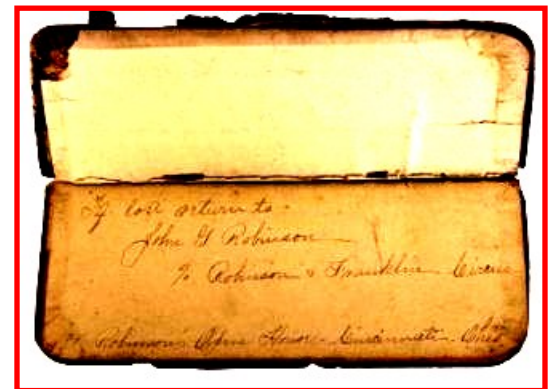 If lost return to
John G Robinson
% Robinson & Franklin Circus
or Robinson's Opera House Cincinnati Ohio